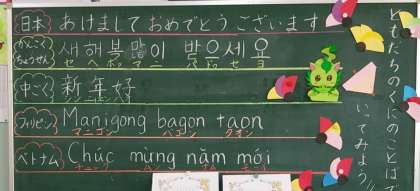 日本 あけまして おめでとう ございます
かんこく ちょうせん 새해 복 많이 받으세요
セ ヘ ボッ マ ニ パ ドゥ セ ヨ
中ごく 新年好
フィリピン Manigong bagon taon
マニゴン バゴン タオン
ベトナム Chúc mừng năm mới
ともだちのくにのことばで
いってみよう